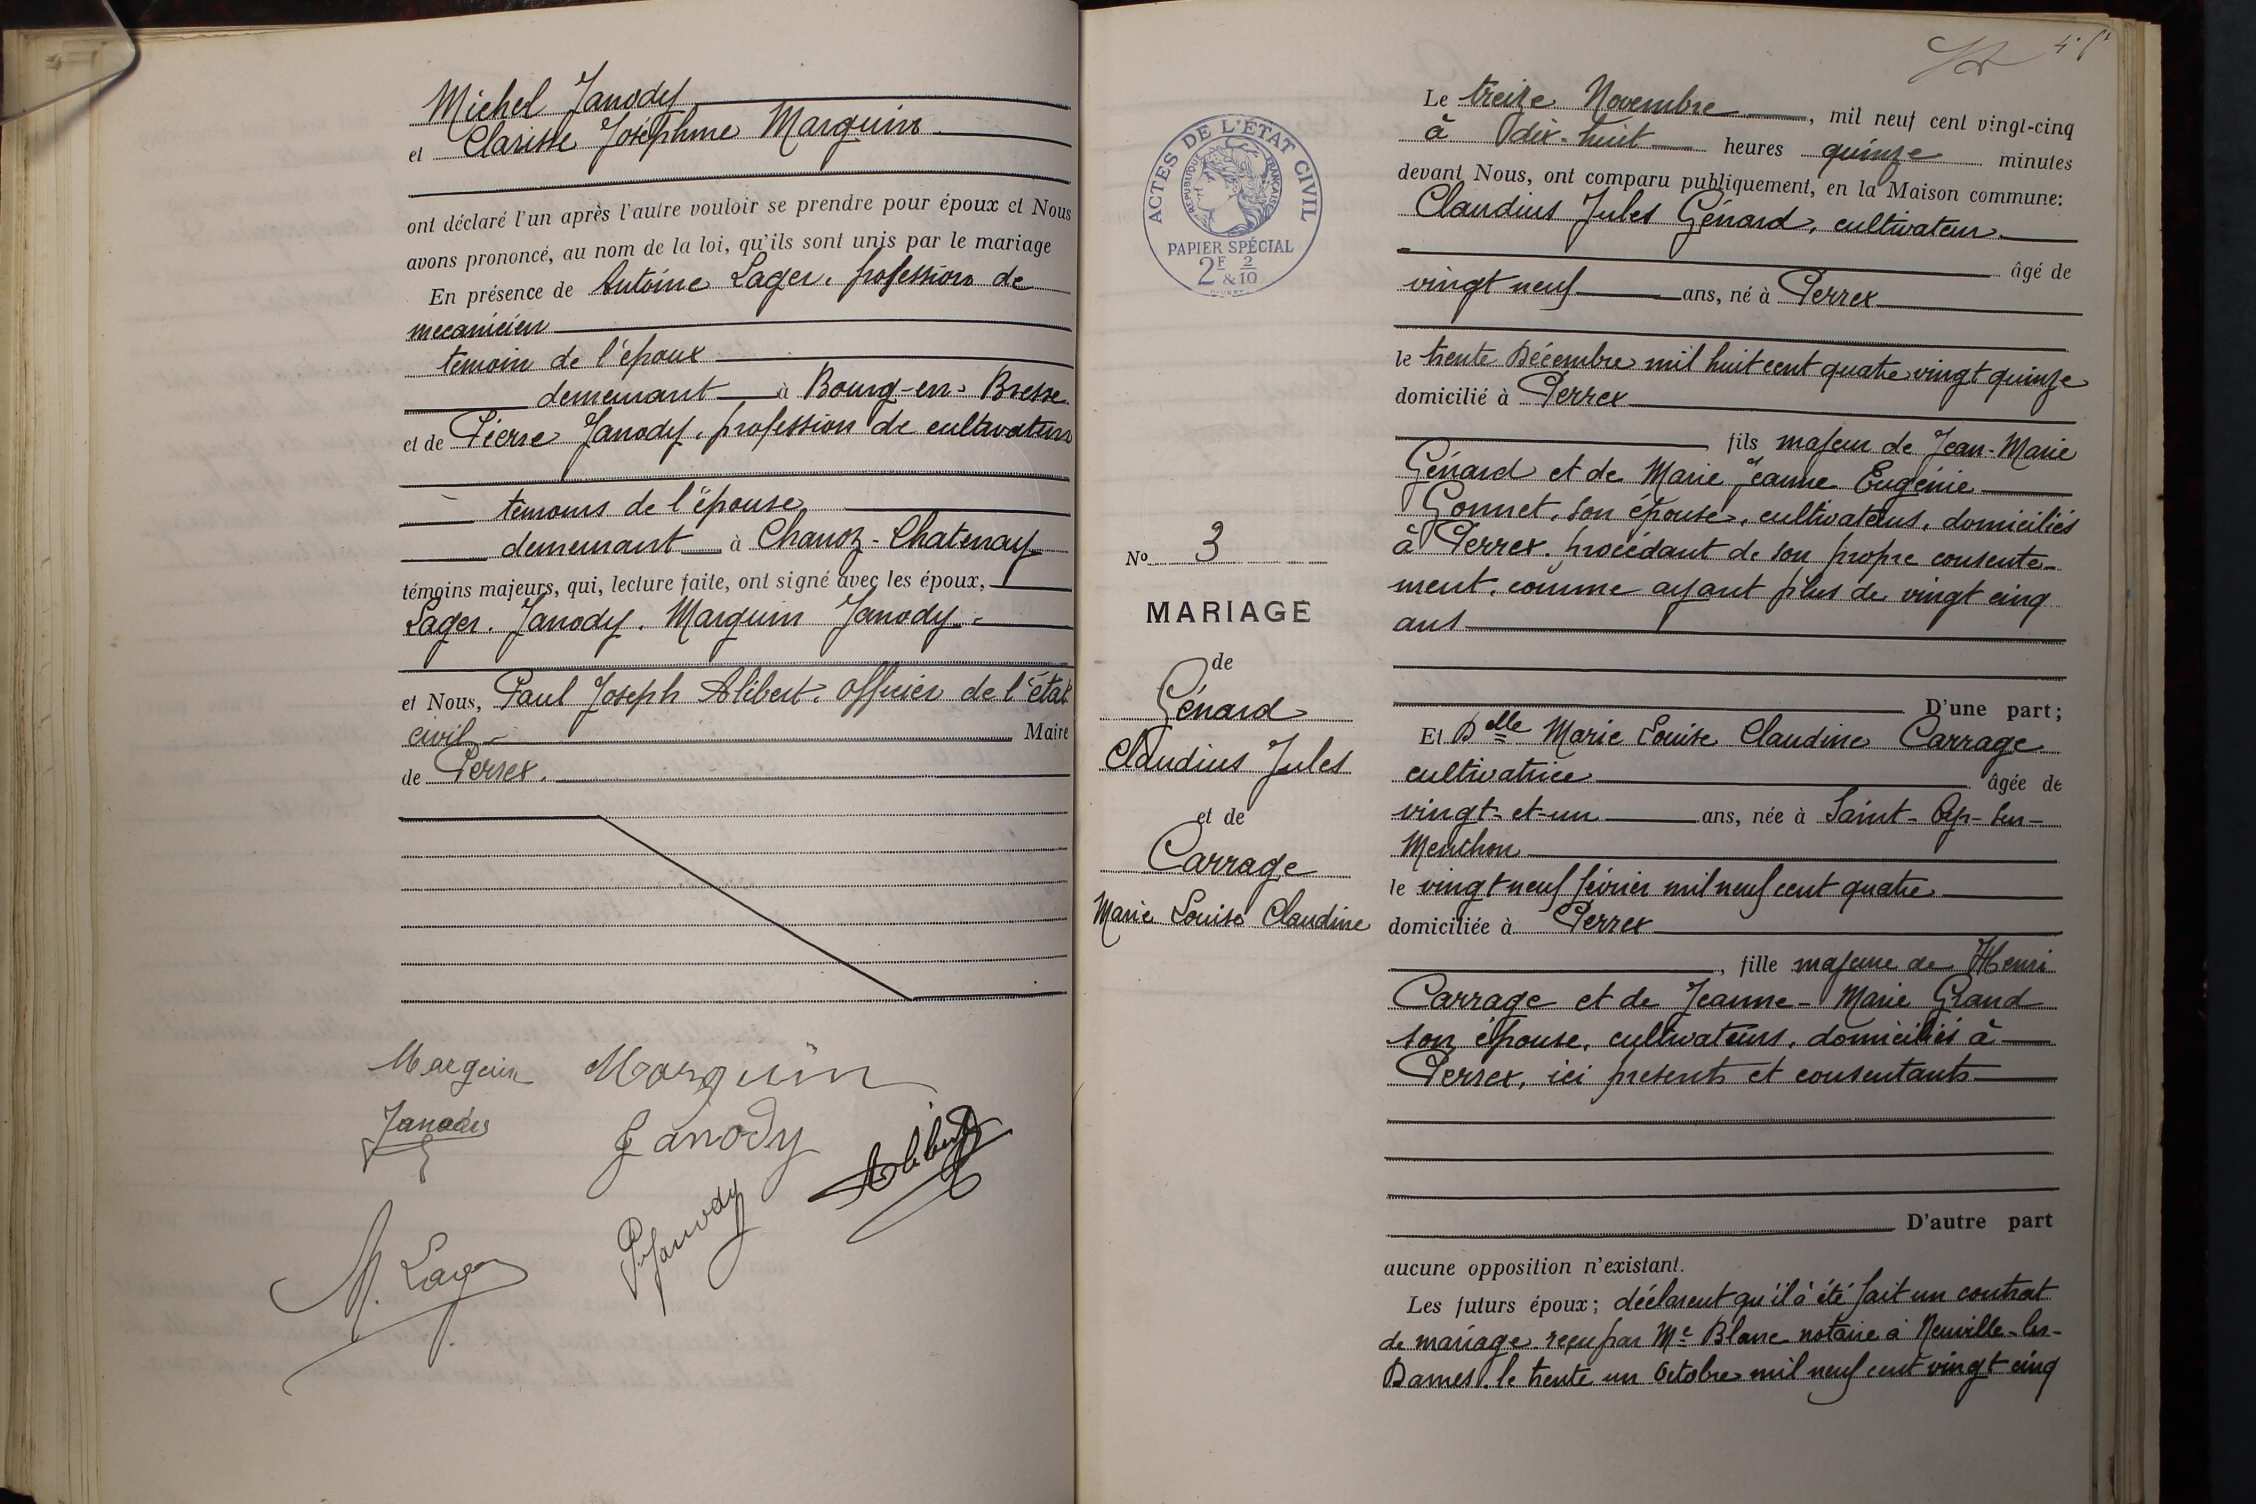 Michel Janody
et Clarisse Joséphine Marguin
ont déclaré l'un après l'autre vouloir se prendre pour époux et Nous
avons prononcé, au nom de la loi, qu'ils sont unis par le mariage
En présence de Antoine Lager, profession de
mecanicien
témoin de l'époux
demeurant à Bourg-en-Bresse
et de Pierre Janody, profession de cultivateur
temoins de l'épouse
demeurant à Chanoz-Chatenay
témoins majeurs, qui, lecture faite, ont signé avec les époux,
Lager. Janody. Marguin Janody
et Nous, Paul Joseph Alibert, officier de l'état
civil Maire
de Perrex.
Marguin Marguin
Janody Janody
Alibert
P. Janody
Lager
ACTES DE L'ÉTAT CIVIL
RÉPUBLIQUE FRANÇAISE
PAPIER SPÉCIAL
2F & 2/10
No 3
MARIAGE
de
Génard
Claudius Jules
et de
Carrage
Marie Louise Claudine
Le treize Novembre, mil neuf cent vingt-cinq
à dix-huit heures quinze minutes
devant Nous, ont comparu publiquement, en la Maison commune:
Claudius Jules Génard, cultivateur
âgé de
vingt neuf ans, né à Perrex
le trente Décembre mil huit cent quatre vingt quinze
domicilié à Perrex
fils majeur de Jean-Marie
Génard et de Marie Jeanne Eugénie
Gonnet, son épouse, cultivateurs, domiciliés
à Perrex. procédant de son propre consente-
ment, comme ayant plus de vingt cinq
ans
D'une part;
Et Delle Marie Louise Claudine Carrage
cultivatrice âgée de
vingt-et-un ans, née à Saint-Cyr-sur-
Menthon
le vingt neuf février mil neuf cent quatre
domiciliée à Perrex
, fille majeure de Henri
Carrage et de Jeanne-Marie Grand
son épouse, cultivateurs, domiciliés à
Perrex, ici presents et consentants
D'autre part
aucune opposition n'existant.
Les futurs époux; déclarent qu'il à été fait un contrat
de mariage reçu par Me Blanc notaire à Neuville-les-
Dames, le trente un Octobre mil neuf cent vingt cinq